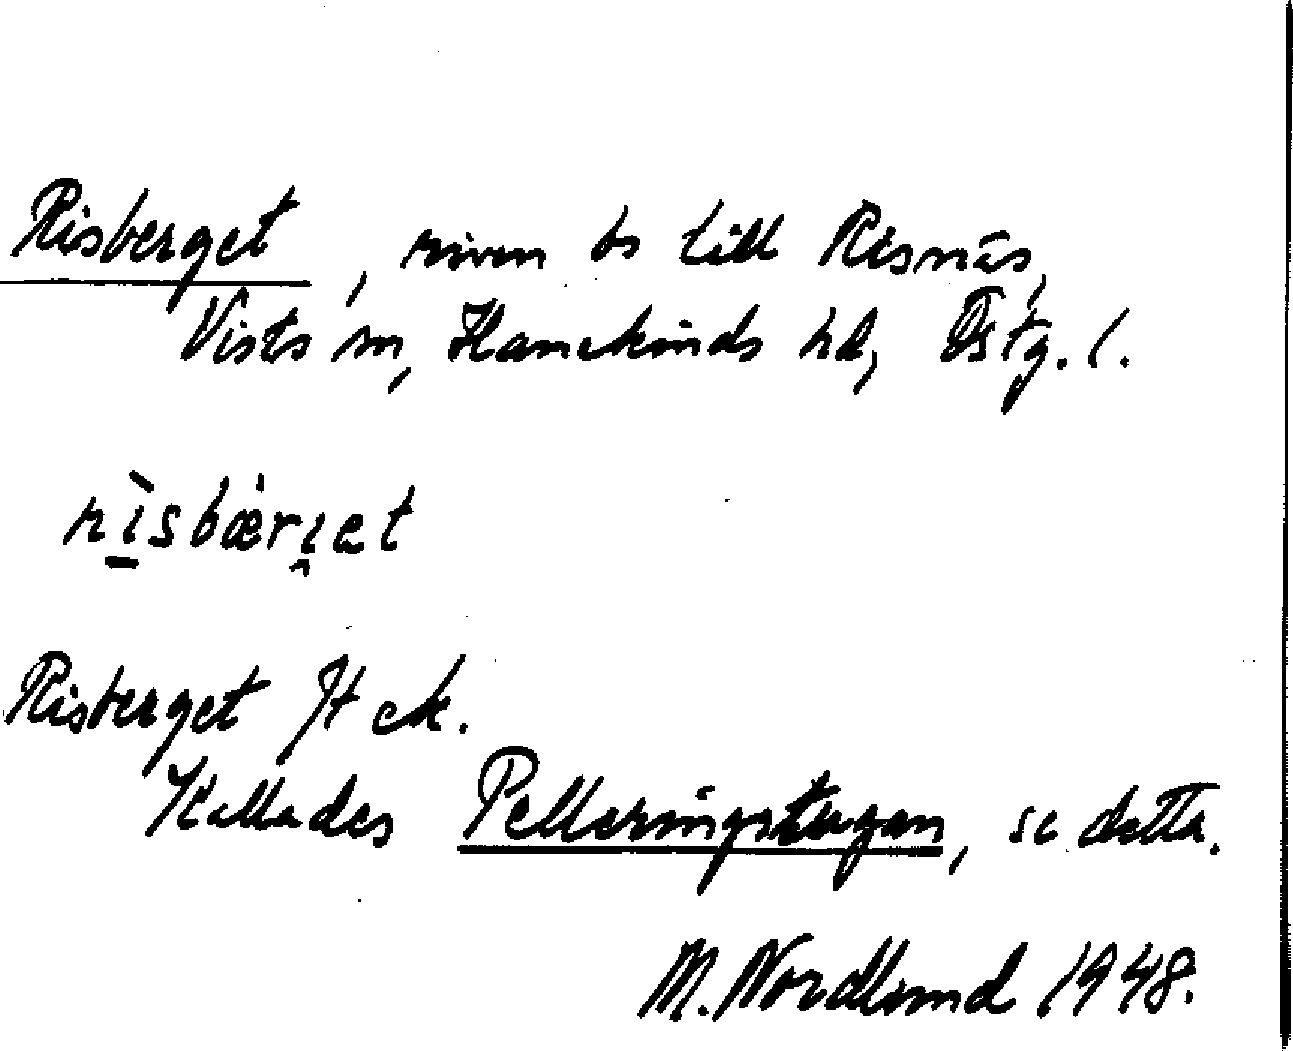 Risberget, riven bs till Risnäs,
Vists sn, Hanekinds hd, Östg. l.
rìsbær̀i̯et
Risberget Jt ek.
Kallades Pelleringstugan, se detta.
M. Nordlund 1948.